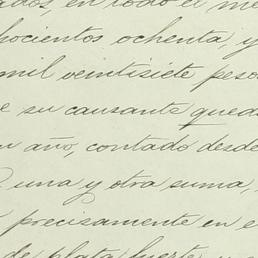 ados, en todo el me
hocientos ochenta, y
mil veintisiete peso
e su causante queda
n año, contado desde
una y otra suma,
precisamente en e
de plata fuerte, y